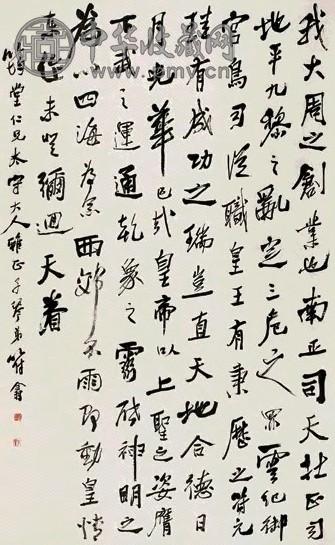 中华收藏网
我大周之創業也南正司天北正司
地平九黎之亂定三危之罪雲紀御
官鳥司從職皇王有秉曆之符元
珪有成功之瑞豈直天地合德日
月光華已哉皇帝以上聖之姿膺
下武之運通乾象之靈啟神明之
為心四海為念西郊不雨即動皇情
東作未登彌迴天眷
堂仁兄太守大人雅正子琴弟符翁